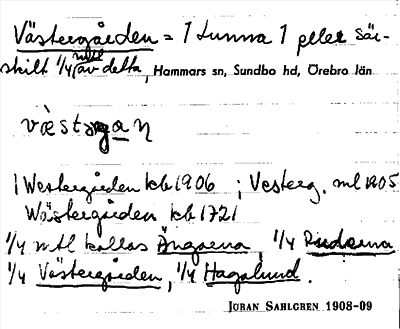 Västergården = 1 tunna 1 eller Sär-
skilt 1/4 mtl av detta, Hammars sn, Sundbo hd, Örebro län
væstəgaɳ
1 Westergården kb 1906 ; Vesterg. ml 1905
Wästergården kb 1721
1/4 mtl kallas Ängarna, 1/4
1/4 Västergården, 1/4 Hagalund.
JÖRAN SAHLGREN 1908-09